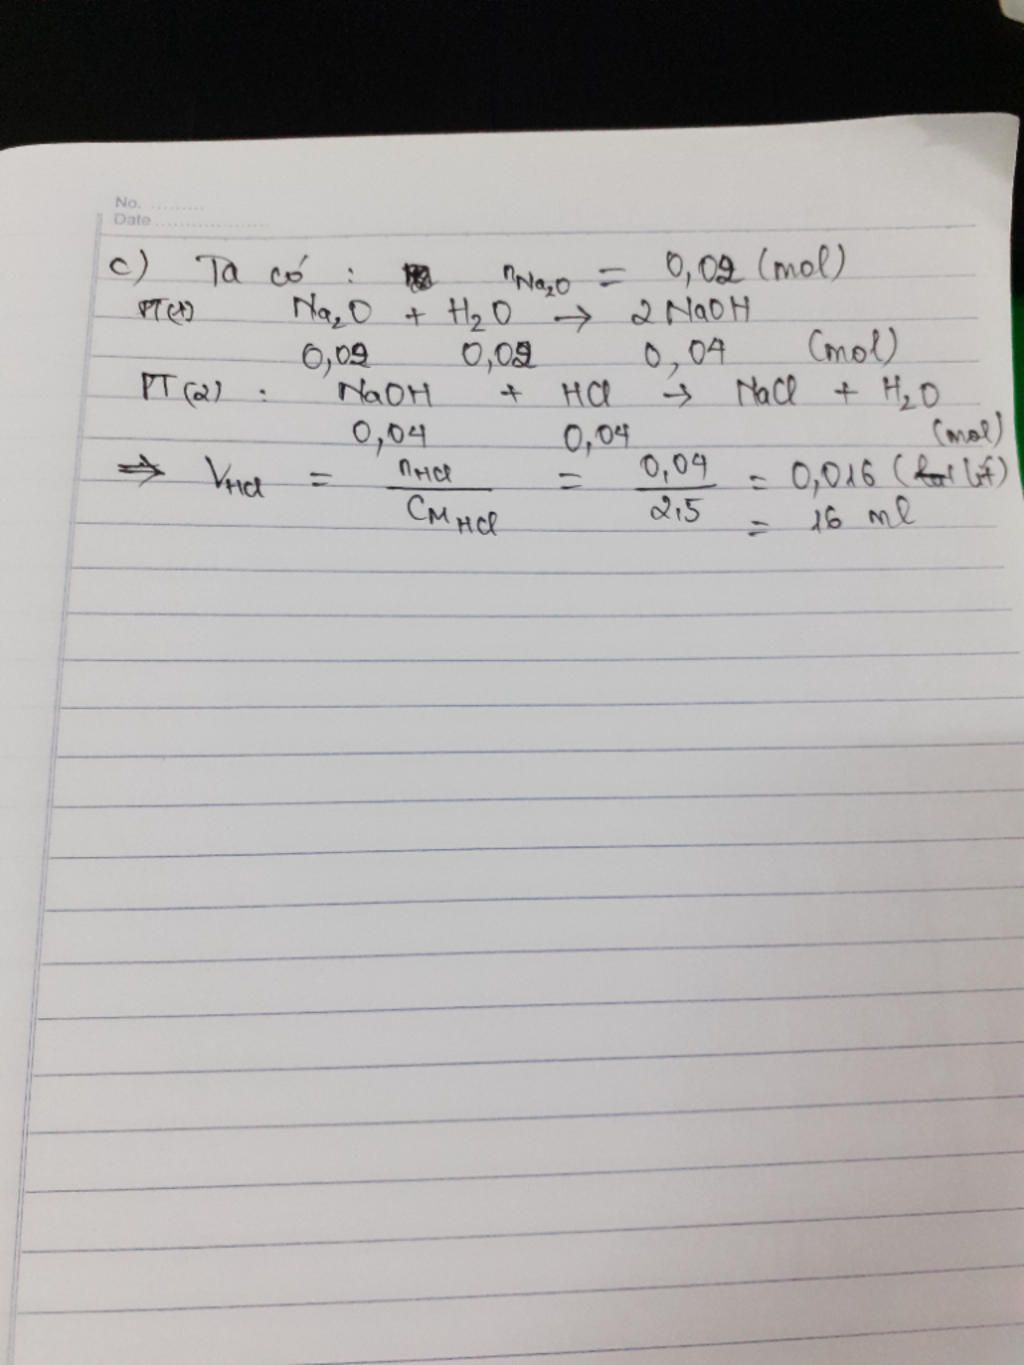 No. .........
Date ....................
c) Ta có : nNa₂O = 0,02 (mol)
PT(1) Na₂O + H₂O → 2 NaOH
0,02 0,02 0,04 (mol)
PT(2) : NaOH + HCl → NaCl + H₂O
0,04 0,04 (mol)
⇒ VHCl = nHCl / CMHCl = 0,04 / 2,5 = 0,016 (lít)
= 16 ml